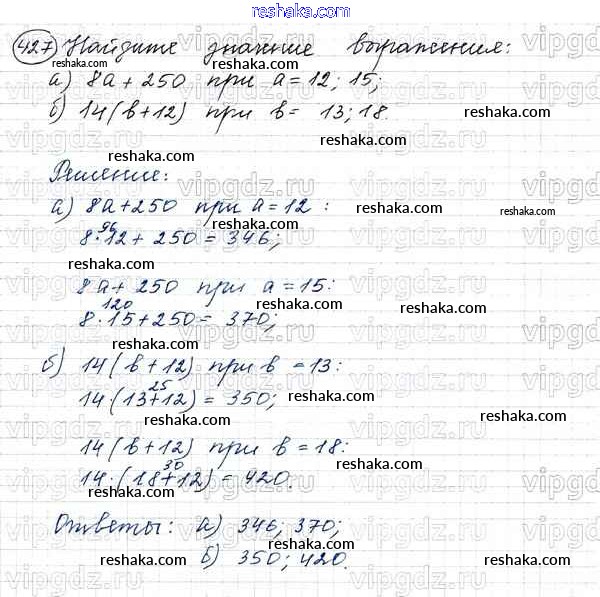 reshaka.com
427 Найдите значение выражения:
reshaka.com
а) 8a + 250 при a = 12; 15;
reshaka.com
б) 14(b+12) при b = 13; 18.
reshaka.com
reshaka.com
Решение:
vipgdz.ru vipgdz.ru
reshaka.com
а) 8a+250 при a = 12 :
reshaka.com
reshaka.com
96
8·12 + 250 = 346;
reshaka.com
8a + 250 при a = 15:
vipgdz.ru vipgdz.ru
120
reshaka.com
8·15+250 = 370;
reshaka.com
б) 14(b+12) при b = 13:
reshaka.com
25
14(13+12) = 350;
reshaka.com
reshaka.com
14(b+12) при b = 18:
reshaka.com
30
14·(18+12) = 420.
reshaka.com
reshaka.com
Ответы: а) 346; 370;
reshaka.com
б) 350; 420.
reshaka.com
reshaka.com
vipgdz.ru vipgdz.ru